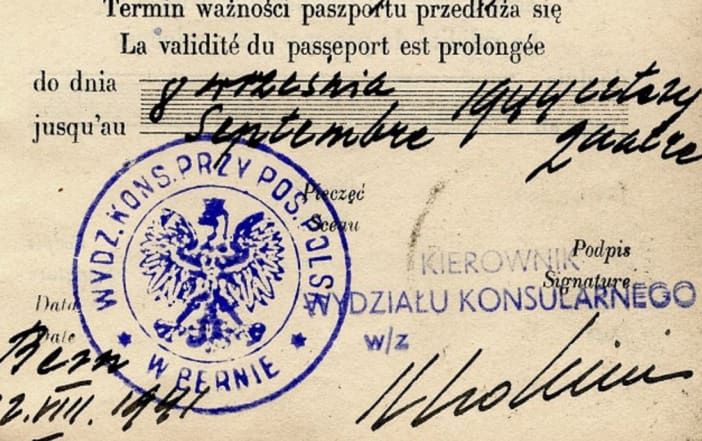 Termin ważności paszportu przedłuża się
La validité du passeport est prolongée
do dnia 9 września 1944 cztery
jusqu'au Septembre quatre
WYDZ. KONS. PRZY POS. POLSK.
W BERNIE
Pieczęć
Sceau
Podpis
Signature
KIEROWNIK
WYDZIAŁU KONSULARNEGO
w/z
Data
Date
Bern
2.VIII.1941